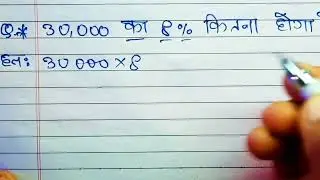 Q.* 30,000 का 8% कितना होगा
हलः 30000×8